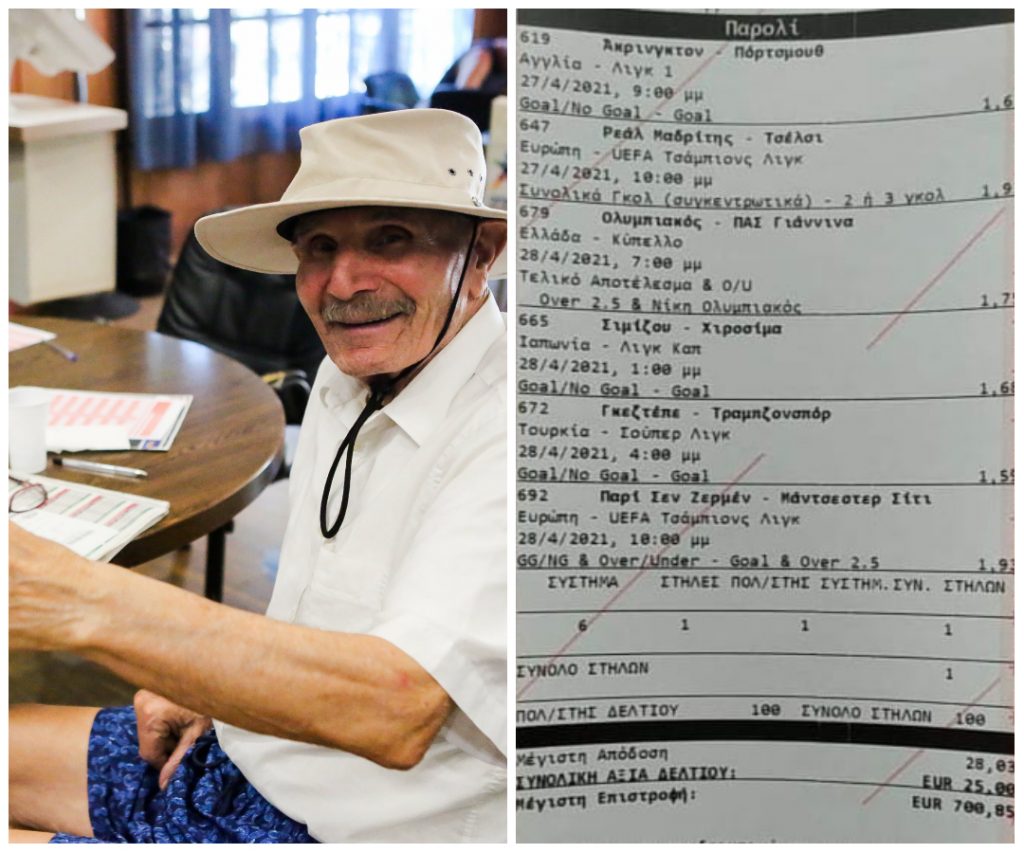 Παρολί
619 Άκρινγκτον - Πόρτσμουθ
Αγγλία - Λιγκ 1
27/4/2021, 9:00 μμ
Goal/No Goal - Goal 1,6
647 Ρεάλ Μαδρίτης - Τσέλσι
Ευρώπη - UEFA Τσάμπιονς Λιγκ
27/4/2021, 10:00 μμ
Συνολικά Γκολ (συγκεντρωτικά) - 2 ή 3 γκολ 1,9
679 Ολυμπιακός - ΠΑΣ Γιάννινα
Ελλάδα - Κύπελλο
28/4/2021, 7:00 μμ
Τελικό Αποτέλεσμα & O/U
Over 2.5 & Νίκη Ολυμπιακός 1,75
665 Σιμίζου - Χιροσίμα
Ιαπωνία - Λιγκ Καπ
28/4/2021, 1:00 μμ
Goal/No Goal - Goal 1,68
672 Γκεζτέπε - Τραμπζονσπόρ
Τουρκία - Σούπερ Λιγκ
28/4/2021, 4:00 μμ
Goal/No Goal - Goal 1,59
692 Παρί Σεν Ζερμέν - Μάντσεστερ Σίτι
Ευρώπη - UEFA Τσάμπιονς Λιγκ
28/4/2021, 10:00 μμ
GG/NG & Over/Under - Goal & Over 2.5 1,93
ΣΥΣΤΗΜΑ ΣΤΗΛΕΣ ΠΟΛ/ΣΤΗΣ ΣΥΣΤΗΜ. ΣΥΝ. ΣΤΗΛΩΝ
6 1 1 1
ΣΥΝΟΛΟ ΣΤΗΛΩΝ 1
ΠΟΛ/ΣΤΗΣ ΔΕΛΤΙΟΥ 100 ΣΥΝΟΛΟ ΣΤΗΛΩΝ 100
Μέγιστη Απόδοση 28,03
ΣΥΝΟΛΙΚΗ ΑΞΙΑ ΔΕΛΤΙΟΥ: EUR 25,00
Μέγιστη Επιστροφή: EUR 700,85